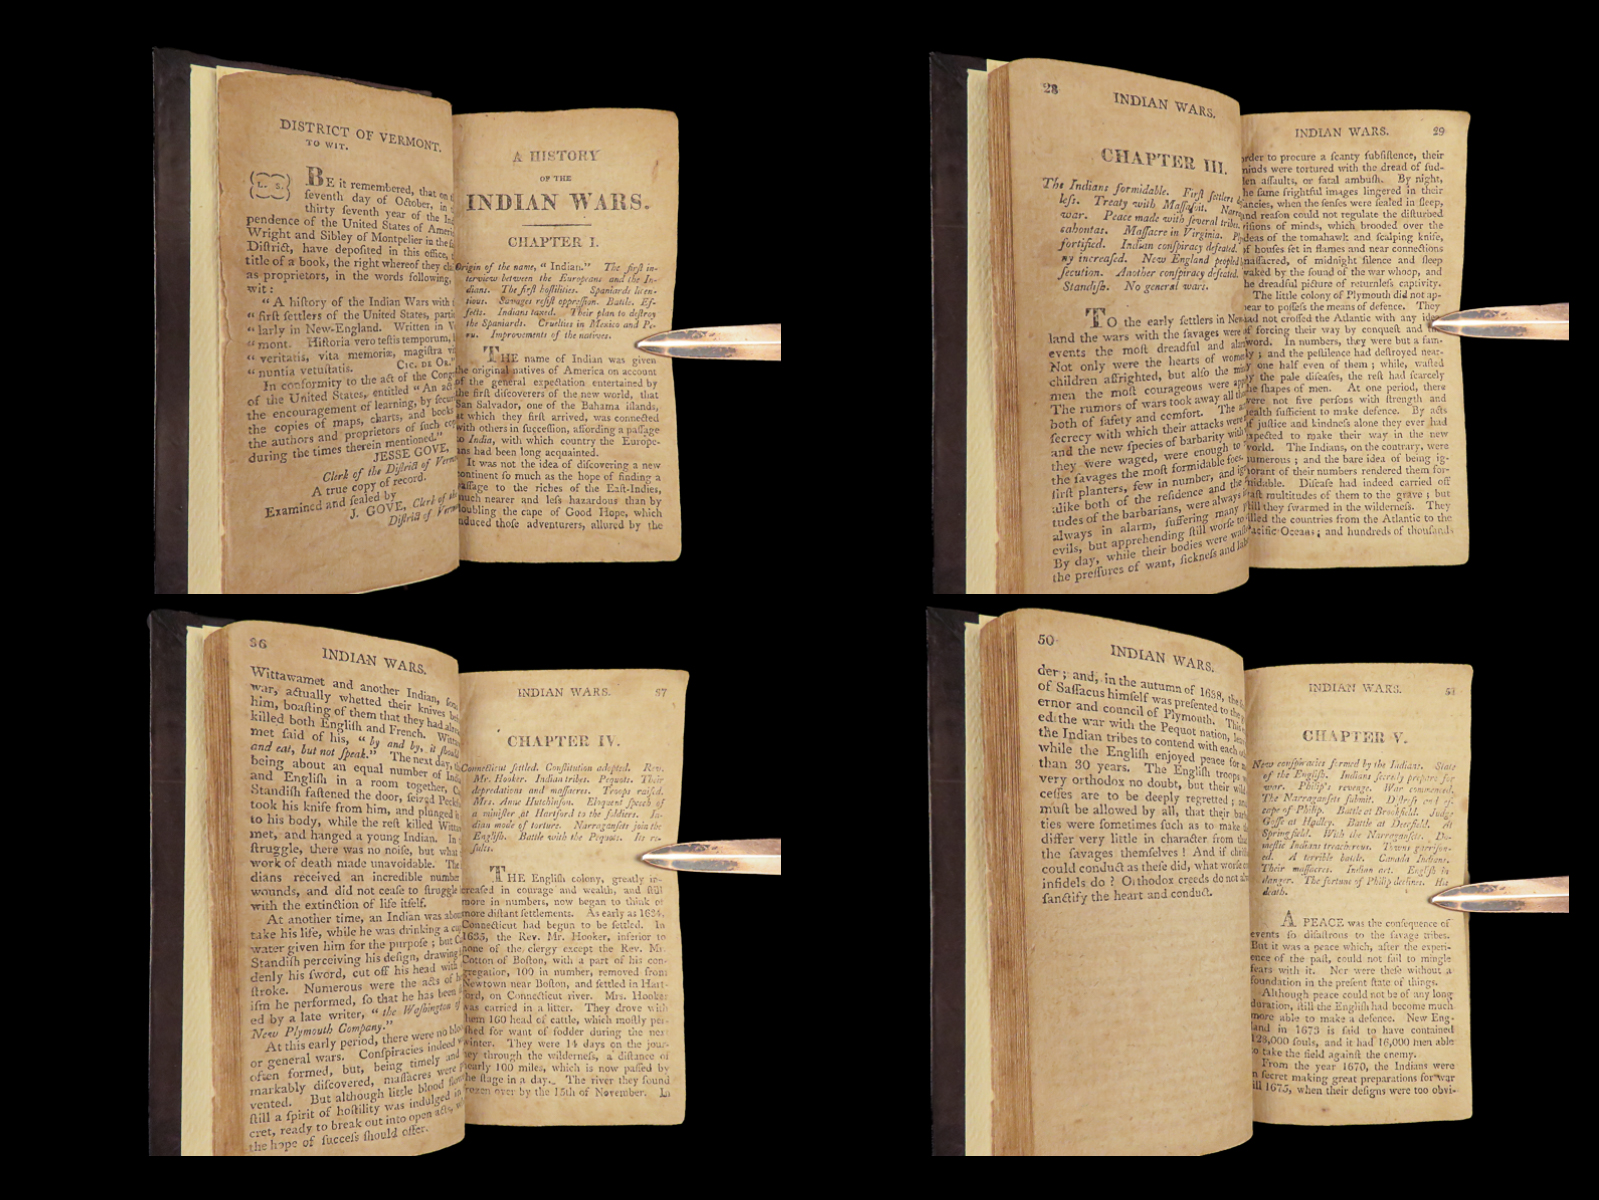 DISTRICT OF VERMONT.
TO WIT.
L. S.
BE it remembered, that on
ſeventh day of October, in
thirty ſeventh year of the
pendence of the United States of
Wright and Sibley of Montpelier in the
Diſtrict, have depoſited in this office,
title of a book, the right whereof they
as proprietors, in the words following,
wit:
"A hiſtory of the Indian Wars with
" firſt ſettlers of the United States,
" larly in New-England. Written in
" mont. Hiſtoria vero teſtis temporum,
" veritatis, vita memoriæ, magiſtra
" nuntia vetuſtatis. CIC. DE OR."
In conformity to the act of the
of the United States, entitled "An act
the encouragement of learning, by
the copies of maps, charts, and books
the authors and proprietors of ſuch
during the times therein mentioned."
JESSE GOVE,
Clerk of the Diſtrict of
A true copy of record.
Examined and ſealed by
J. GOVE, Clerk of the
Diſtrict of
A HISTORY
OF THE
INDIAN WARS.
CHAPTER I.
Origin of the name, "Indian." The firſt in-
terview between the Europeans and the In-
dians. The firſt hoſtilities. Spaniards licen-
tious. Savages reſiſt oppreſſion. Battle. Ef-
fects. Indians taxed. Their plan to deſtroy
the Spaniards. Cruelties in Mexico and Pe-
ru. Improvements of the natives.
THE name of Indian was given
the original natives of America on account
of the general expectation entertained by
the firſt diſcoverers of the new world, that
San Salvador, one of the Bahama iſlands,
at which they firſt arrived, was connected
with others in ſucceſſion, affording a paſſage
to India, with which country the Europe-
ans had been long acquainted.
It was not the idea of diſcovering a new
continent ſo much as the hope of finding a
paſſage to the riches of the Eaſt-Indies,
much nearer and leſs hazardous than by
doubling the cape of Good Hope, which
induced thoſe adventurers, allured by the
28
INDIAN WARS.
CHAPTER III.
The Indians formidable. Firſt ſettlers
leſs. Treaty with Maſſaſoit.
war. Peace made with ſeveral tribes.
cahontas. Maſſacre in Virginia.
fortified. Indian conſpiracy defeated.
ny increaſed. New England peopled
ſecution. Another conſpiracy defeated.
Standiſh. No general wars.
TO the early ſettlers in New
land the wars with the ſavages were
events the moſt dreadful and
Not only were the hearts of
children affrighted, but alſo the
men the moſt courageous were
The rumors of wars took away all
both of ſafety and comfort. The
ſecrecy with which their attacks were
and the new ſpecies of barbarity with
they were waged, were enough to
the ſavages the moſt formidable foes.
firſt planters, few in number, and
alike both of the reſidence and the
tudes of the barbarians, were always
always in alarm, ſuffering many
evils, but apprehending ſtill worſe to
By day, while their bodies were
the preſſures of want, ſickneſs and
INDIAN WARS. 29
order to procure a ſcanty ſubſiſtence, their
minds were tortured with the dread of ſud-
den aſſaults, or fatal ambuſh. By night,
the ſame frightful images lingered in their
fancies, when the ſenſes were ſealed in ſleep,
and reaſon could not regulate the diſturbed
viſions of minds, which brooded over the
ideas of the tomahawk and ſcalping knife,
of houſes ſet in flames and near connections
maſſacred, of midnight ſilence and ſleep
waked by the ſound of the war whoop, and
the dreadful picture of returnleſs captivity.
The little colony of Plymouth did not ap-
pear to poſſeſs the means of defence. They
had not croſſed the Atlantic with any
of forcing their way by conqueſt and
ſword. In numbers, they were but a fam-
ily; and the peſtilence had deſtroyed near-
ly one half even of them; while, waſted
by the pale diſeaſes, the reſt had ſcarcely
the ſhapes of men. At one period, there
were not five perſons with ſtrength and
health ſufficient to make defence. By acts
of juſtice and kindneſs alone they ever had
expected to make their way in the new
world. The Indians, on the contrary, were
numerous; and the bare idea of being ig-
norant of their numbers rendered them for-
midable. Diſeaſe had indeed carried off
vaſt multitudes of them to the grave; but
ſtill they ſwarmed in the wilderneſs. They
filled the countries from the Atlantic to the
Pacific Oceans; and hundreds of thouſands
36
INDIAN WARS.
Wittawamet and another Indian,
war, actually whetted their knives
him, boaſting of them that they had
killed both Engliſh and French.
met ſaid of his, "by and by, it ſhould
and eat, but not ſpeak." The next day,
being about an equal number of
and Engliſh in a room together,
Standiſh faſtened the door, ſeized
took his knife from him, and plunged
to his body, while the reſt killed
met, and hanged a young Indian. In
ſtruggle, there was no noiſe, but what
work of death made unavoidable. The
dians received an incredible number
wounds, and did not ceaſe to ſtruggle
with the extinction of life itſelf.
At another time, an Indian was
take his life, while he was drinking a
water given him for the purpoſe; but
Standiſh perceiving his deſign, drawing
denly his ſword, cut off his head with
ſtroke. Numerous were the acts of
iſm he performed, ſo that he has been
ed by a late writer, "the Waſhington of
New Plymouth Company."
At this early period, there were no
or general wars. Conſpiracies indeed
often formed, but, being timely and
markably diſcovered, maſſacres were
vented. But although little blood
ſtill a ſpirit of hoſtility was indulged in
cret, ready to break out into open acts,
the hope of ſucceſs ſhould offer.
INDIAN WARS. 37
CHAPTER IV.
Connecticut ſettled. Conſtitution adopted. Rev.
Mr. Hooker. Indian tribes. Pequots. Their
depredations and maſſacres. Troops raiſed.
Mrs. Anne Hutchinſon. Eloquent ſpeech of
a miniſter at Hartford to the ſoldiers. In-
dian mode of torture. Narraganſets join the
Engliſh. Battle with the Pequots. Its re-
ſults.
THE Engliſh colony, greatly in-
creaſed in courage and wealth, and ſtill
more in numbers, now began to think of
more diſtant ſettlements. As early as 1634,
Connecticut had begun to be ſettled. In
1635, the Rev. Mr. Hooker, inferior to
none of the clergy except the Rev. Mr.
Cotton of Boſton, with a part of his con-
gregation, 100 in number, removed from
Newtown near Boſton, and ſettled in Hart-
ford, on Connecticut river. Mrs. Hooker
was carried in a litter. They drove with
them 160 head of cattle, which moſtly per-
iſhed for want of fodder during the next
winter. They were 14 days on the jour-
ney through the wilderneſs, a diſtance of
nearly 100 miles, which is now paſſed by
the ſtage in a day. The river they found
frozen over by the 15th of November. In
50
INDIAN WARS.
der; and, in the autumn of 1638, the
of Saſſacus himſelf was preſented to the
ernor and council of Plymouth.
ed the war with the Pequot nation,
the Indian tribes to contend with each
while the Engliſh enjoyed peace for
than 30 years. The Engliſh troops
very orthodox no doubt, but their
ceſſes are to be deeply regretted;
muſt be allowed by all, that their
ties were ſometimes ſuch as to make
differ very little in character from
the ſavages themſelves! And if
could conduct as theſe did, what worſe
infidels do? Orthodox creeds do not
ſanctify the heart and conduct.
INDIAN WARS.
CHAPTER V.
New conſpiracies formed by the Indians. State
of the Engliſh. Indians ſecretly prepare for
war. Philip's revenge. War commenced.
The Narraganſets ſubmit. Diſtreſs and eſ-
cape of Philip. Battle at Brookfield. Judge
Goffe at Hadley. Battle at Deerfield. At
Springfield. With the Narraganſets. Do-
meſtic Indians treacherous. Towns garriſon-
ed. A terrible battle. Canada Indians.
Their maſſacres. Indian art. Engliſh in
danger. The fortune of Philip declines. His
death.
A PEACE was the conſequence of
events ſo diſaſtrous to the ſavage tribes.
But it was a peace which, after the experi-
ence of the paſt, could not fail to mingle
fears with it. Nor were theſe without a
foundation in the preſent ſtate of things.
Although peace could not be of any long
duration, ſtill the Engliſh had become much
more able to make a defence. New Eng-
land in 1673 is ſaid to have contained
120,000 ſouls, and it had 16,000 men able
to take the field againſt the enemy.
From the year 1670, the Indians were
in ſecret making great preparations for war
till 1675, when their deſigns were too obvi-